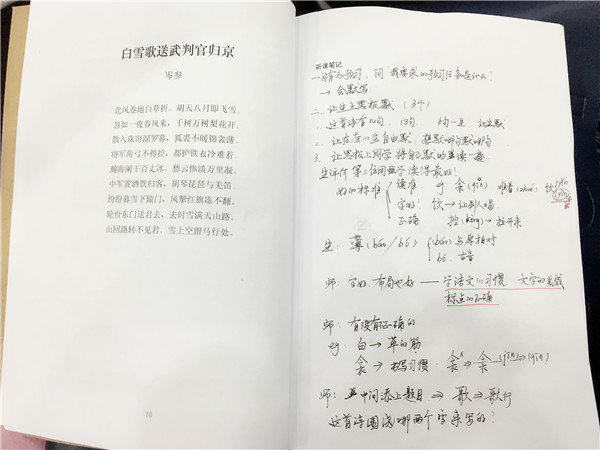 白雪歌送武判官归京
岑参
北风卷地白草折，胡天八月即飞雪。
忽如一夜春风来，千树万树梨花开。
散入珠帘湿罗幕，狐裘不暖锦衾薄。
将军角弓不得控，都护铁衣冷难着。
瀚海阑干百丈冰，愁云惨淡万里凝。
中军置酒饮归客，胡琴琵琶与羌笛。
纷纷暮雪下辕门，风掣红旗冻不翻。
轮台东门送君去，去时雪满天山路。
山回路转不见君，雪上空留马行处。
10
听课笔记
一、有无预习，问"我要求的预习任务是什么？
→ 会默写
二、让生上黑板默（3个）
1. 这首诗有几句 18句 6句一生 让生默
2. 让在座的生自由默，想默哪句默哪句
3. 让黑板上同学将自己默的生读一遍
生评价 第三位同学 读得最好！
好的标准 读准 eg 衾(qīn) 难着(zhuó) 饮
字好！ 饮→让别人喝
正确 控(kòng)→拉开来
生：薄(báo/bó) báo与厚相对
bó 古音
师：字好，布局也好——学语文的习惯 文字的美感
标点的正确
师：有没有正确的
eg：白→草的筋
衾→书写习惯
师：在中间添上题目 ⇒ 歌⇒歌行
这首诗围绕哪两个字来写的？